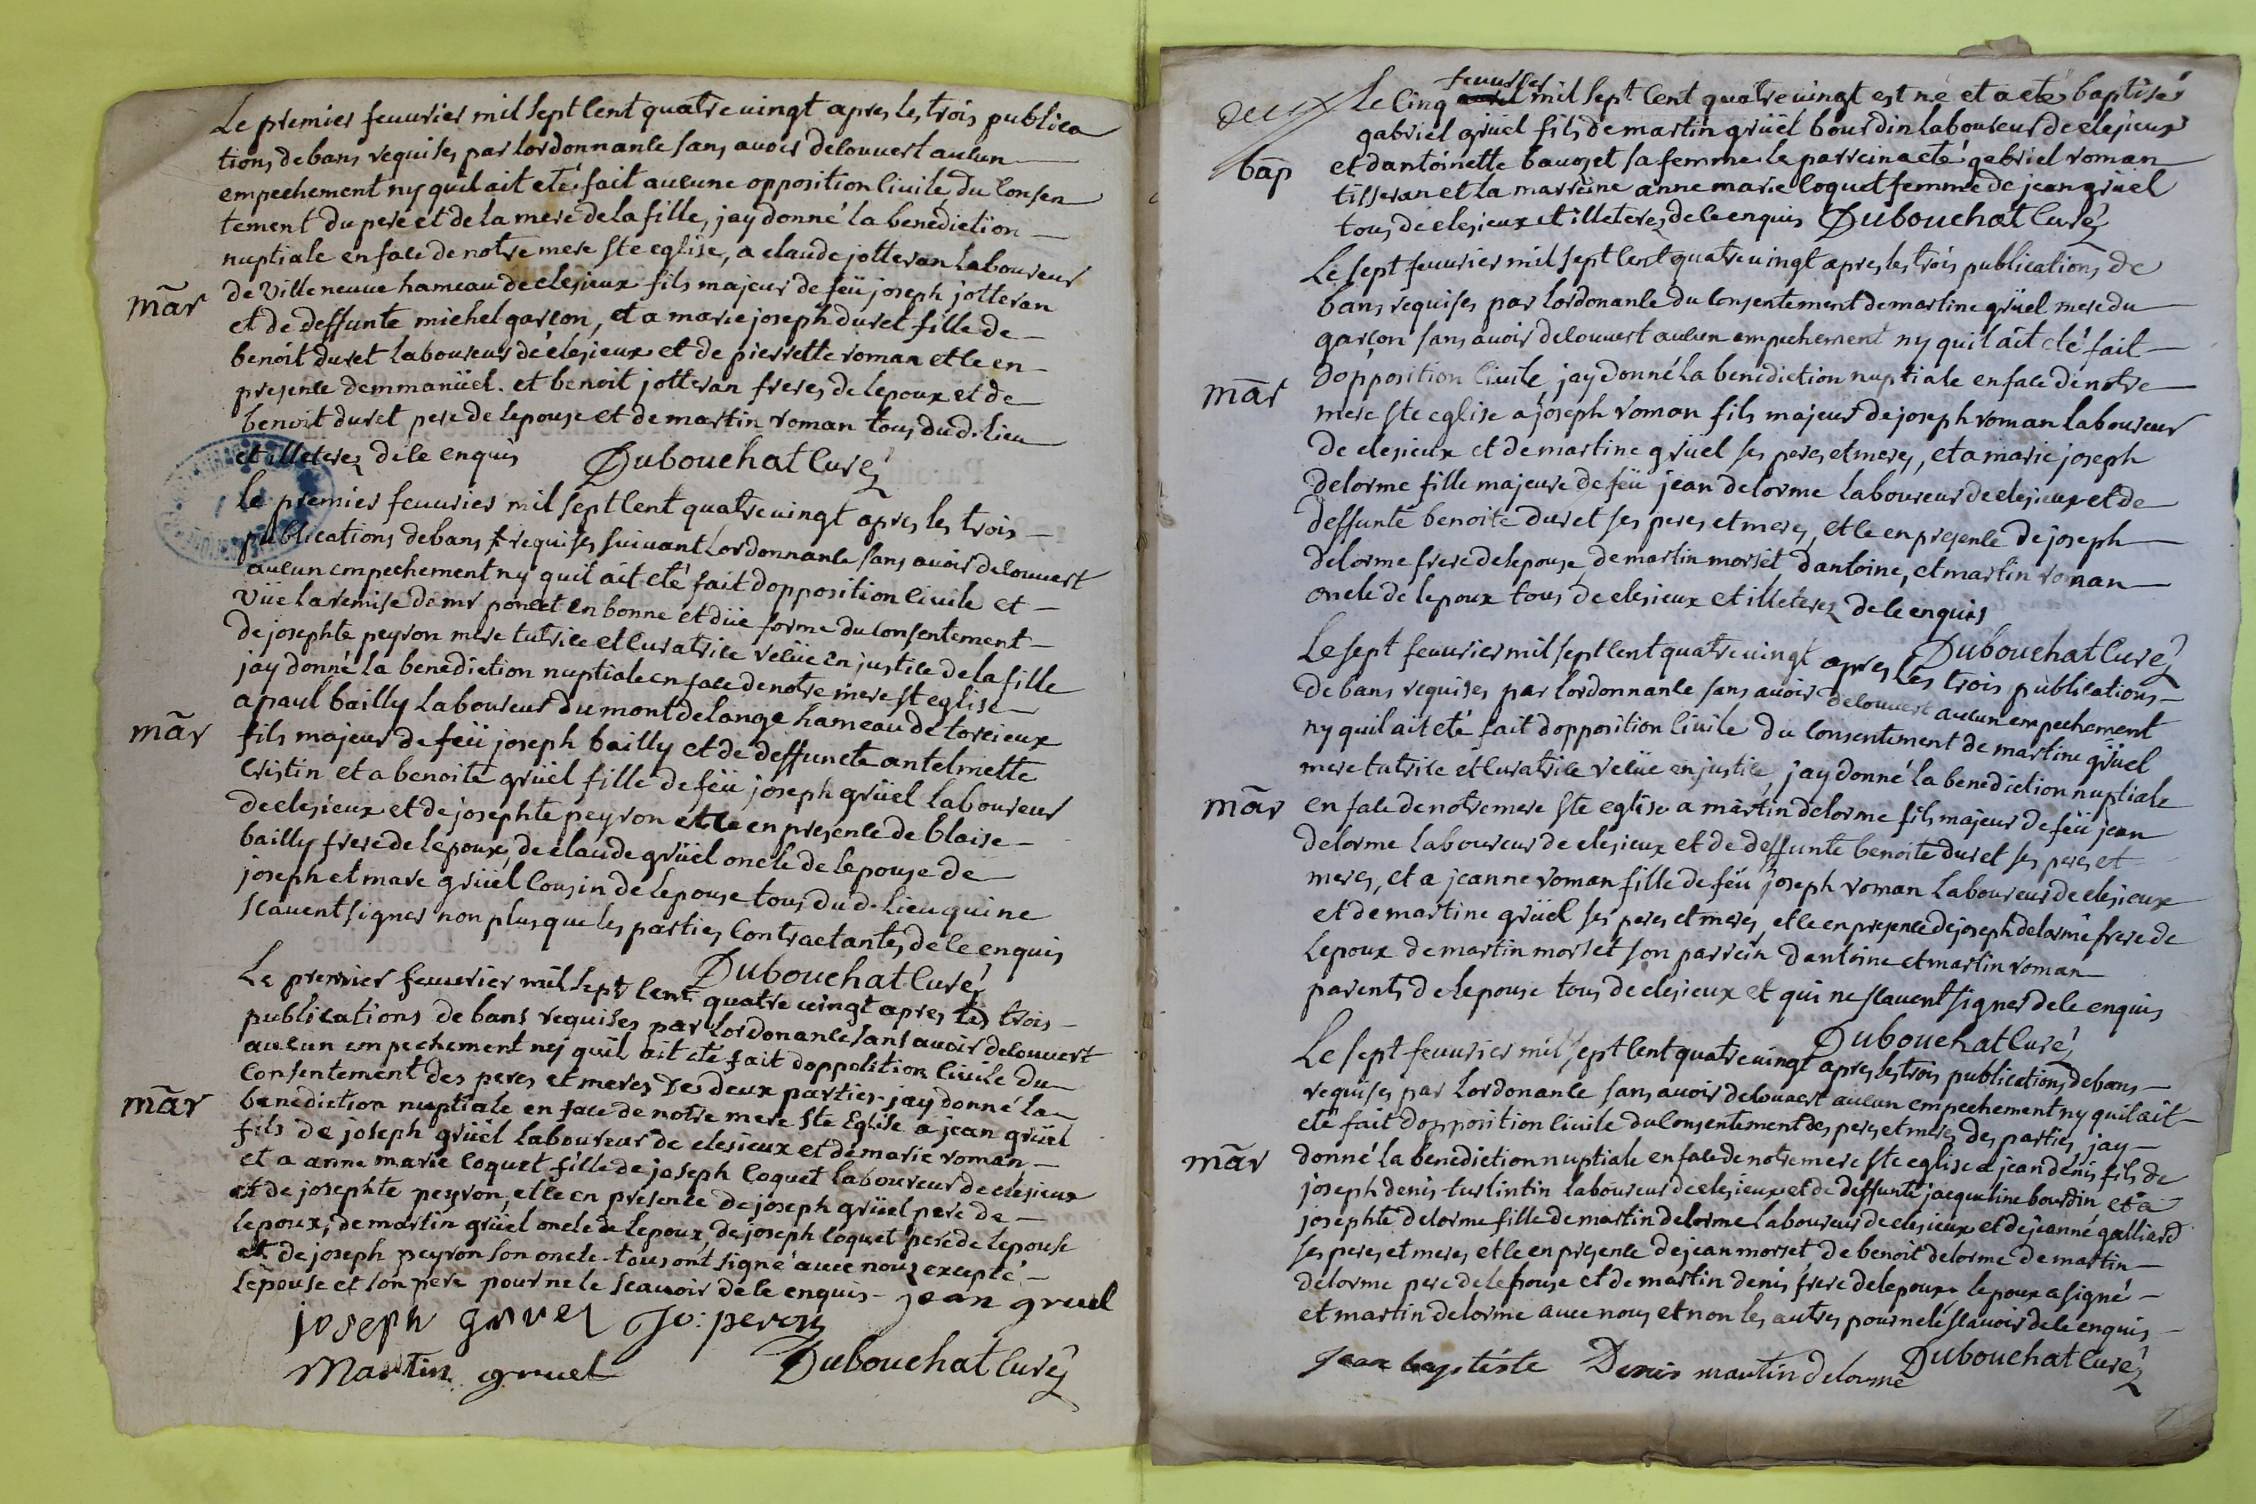 Le premier feuurier mil sept cent quatre uingt apres les trois publica
tions de bans requises par lordonnance sans auoir decouuert aucun
empechement ny quil ait eté fait aucune opposition ciuile, du consen
tement du pere et de la mere de la fille, jay donné la benediction
nuptiale en face de notre mere ste eglise, a claude jotteran laboureur
de Ville neuue hameau de clesieux fils majeur de feü joseph jotteran
mar
et de deffunte michel garçon, et a marie joseph duret fille de
benoit duret laboureur de clesieux et de pierrette roman et ce en
presence demmanüel et benoit jotteran freres de lepoux et de
benoit duret pere de lepouse et de martin roman tous du d. lieu
et illeterez de ce enquis Dubouchat Curé
le premier feuurier mil sept cent quatre uingt apres les trois
publications de bans requises suiuant lordonnance sans auoir decouuert
aucun empechement ny quil ait eté fait dopposition ciuile et
vüe la remise de mr poncet en bonne et düe forme du consentement
de josephte peyron mere tutrice et curatrice relüe en justice de la fille
jay donné la benediction nuptiale en face de notre mere ste eglise
a paul bailly laboureur du mont de lange hameau de torcieux
mar
fils majeur de feü joseph bailly et de deffuncte antelmette
cristin et a benoite grüel fille de feü joseph grüel laboureur
de clesieux et de josephte peyron et ce en presence de blaise
bailly frere de lepoux, de claude grüel oncle de lepouse de
joseph et marc grüel cousin de lepouse tous du d. lieu qui ne
scauent signer non plus que les parties contractantes de ce enquis
Dubouchat Curé
Le premier feuurier mil sept cent quatre uingt apres les trois
publications de bans requises par lordonance sans auoir decouuert
aucun empechement ny quil ait eté fait dopposition ciuile du
consentement des peres et meres des deux parties jay donné la
mar
benediction nuptiale en face de notre mere ste Eglise a jean grüel
fils de joseph grüel laboureur de clesieux et de marie roman
et a anne marie coquet fille de joseph coquet laboureur de clesieux
et de josephte peyron, et ce en presence de joseph grüel pere de
lepoux, de martin grüel oncle de lepoux, de joseph coquet pere de lepouse
et de joseph peyron son oncle tous ont signé auec nous excepté
lepouse et son pere pour ne le scauoir de ce enquis jean gruel
joseph gruel Jo: peron
Martin gruel Dubouchat Curé
deux
feuurier
Le cinq mil sept cent quatre uingt est né et a eté baptisé
gabriel grüel fils de martin grüel bourdin laboureur de clesieux
bap
et dantoinette bauozet sa femme le parrein a eté gabriel roman
tisseran et la marreine anne marie coquet femme de jean grüel
tous de clesieux et illeterez de ce enquis Dubouchat Curé
Le sept feuurier mil sept cent quatre uingt apres les trois publications de
bans requises par lordonance du consentement de martine grüel mere du
garçon sans auoir decouuert aucun empechement ny quil ait eté fait
mar
dopposition ciuile jay donné la benediction nuptiale en face de notre
mere ste eglise a joseph roman fils majeur de joseph roman laboureur
de clesieux et de martine grüel ses peres et meres, et a marie joseph
delorme fille majeure de feü jean delorme laboureur de clesieux et de
deffunte benoite duret ses peres et meres, et ce en presence de joseph
delorme frere de lepouse de martin morset dantoine, et martin roman
oncle de lepoux tous de clesieux et illeterez de ce enquis
Dubouchat Curé
Le sept feuurier mil sept cent quatre uingt apres les trois publications
de bans requises par lordonnance sans auoir decouuert aucun empechement
ny quil ait eté fait dopposition ciuile du consentement de martine grüel
mere tutrice et curatrice relüe en justice, jay donné la benediction nuptiale
mar
en face de notre mere ste eglise a martin delorme fils majeur de feü jean
delorme laboureur de clesieux et de deffunte benoite duret ses peres et
meres, et a jeanne roman fille de feü joseph roman laboureur de clesieux
et de martine grüel ses peres et meres, et ce en presence de joseph delorme frere de
lepoux de martin morset son parrein dantoine et martin roman
parents de lepouse tous de clesieux et qui ne scauent signer de ce enquis
Dubouchat Curé
Le sept feuurier mil sept cent quatre uingt apres les trois publications de bans
requises par lordonance sans auoir decouuert aucun empechement ny quil ait
eté fait dopposition ciuile du consentement des peres et meres des parties, jay
mar
donné la benediction nuptiale en face de notre mere ste eglise a jean denis fils de
joseph denis turlintin laboureur de clesieux et de deffunte jacqueline bourdin et a
josephte delorme fille de martin delorme laboureur de clesieux et de jeanne galliard
ses peres et meres et ce en presence de jean morset de benoit delorme de martin
delorme pere de lepouse et de martin denis frere de lepoux lepoux a signé
et martin delorme auec nous et non les autres pour ne le scauoir de ce enquis
Jean baptiste Denis martin delorme Dubouchat Curé